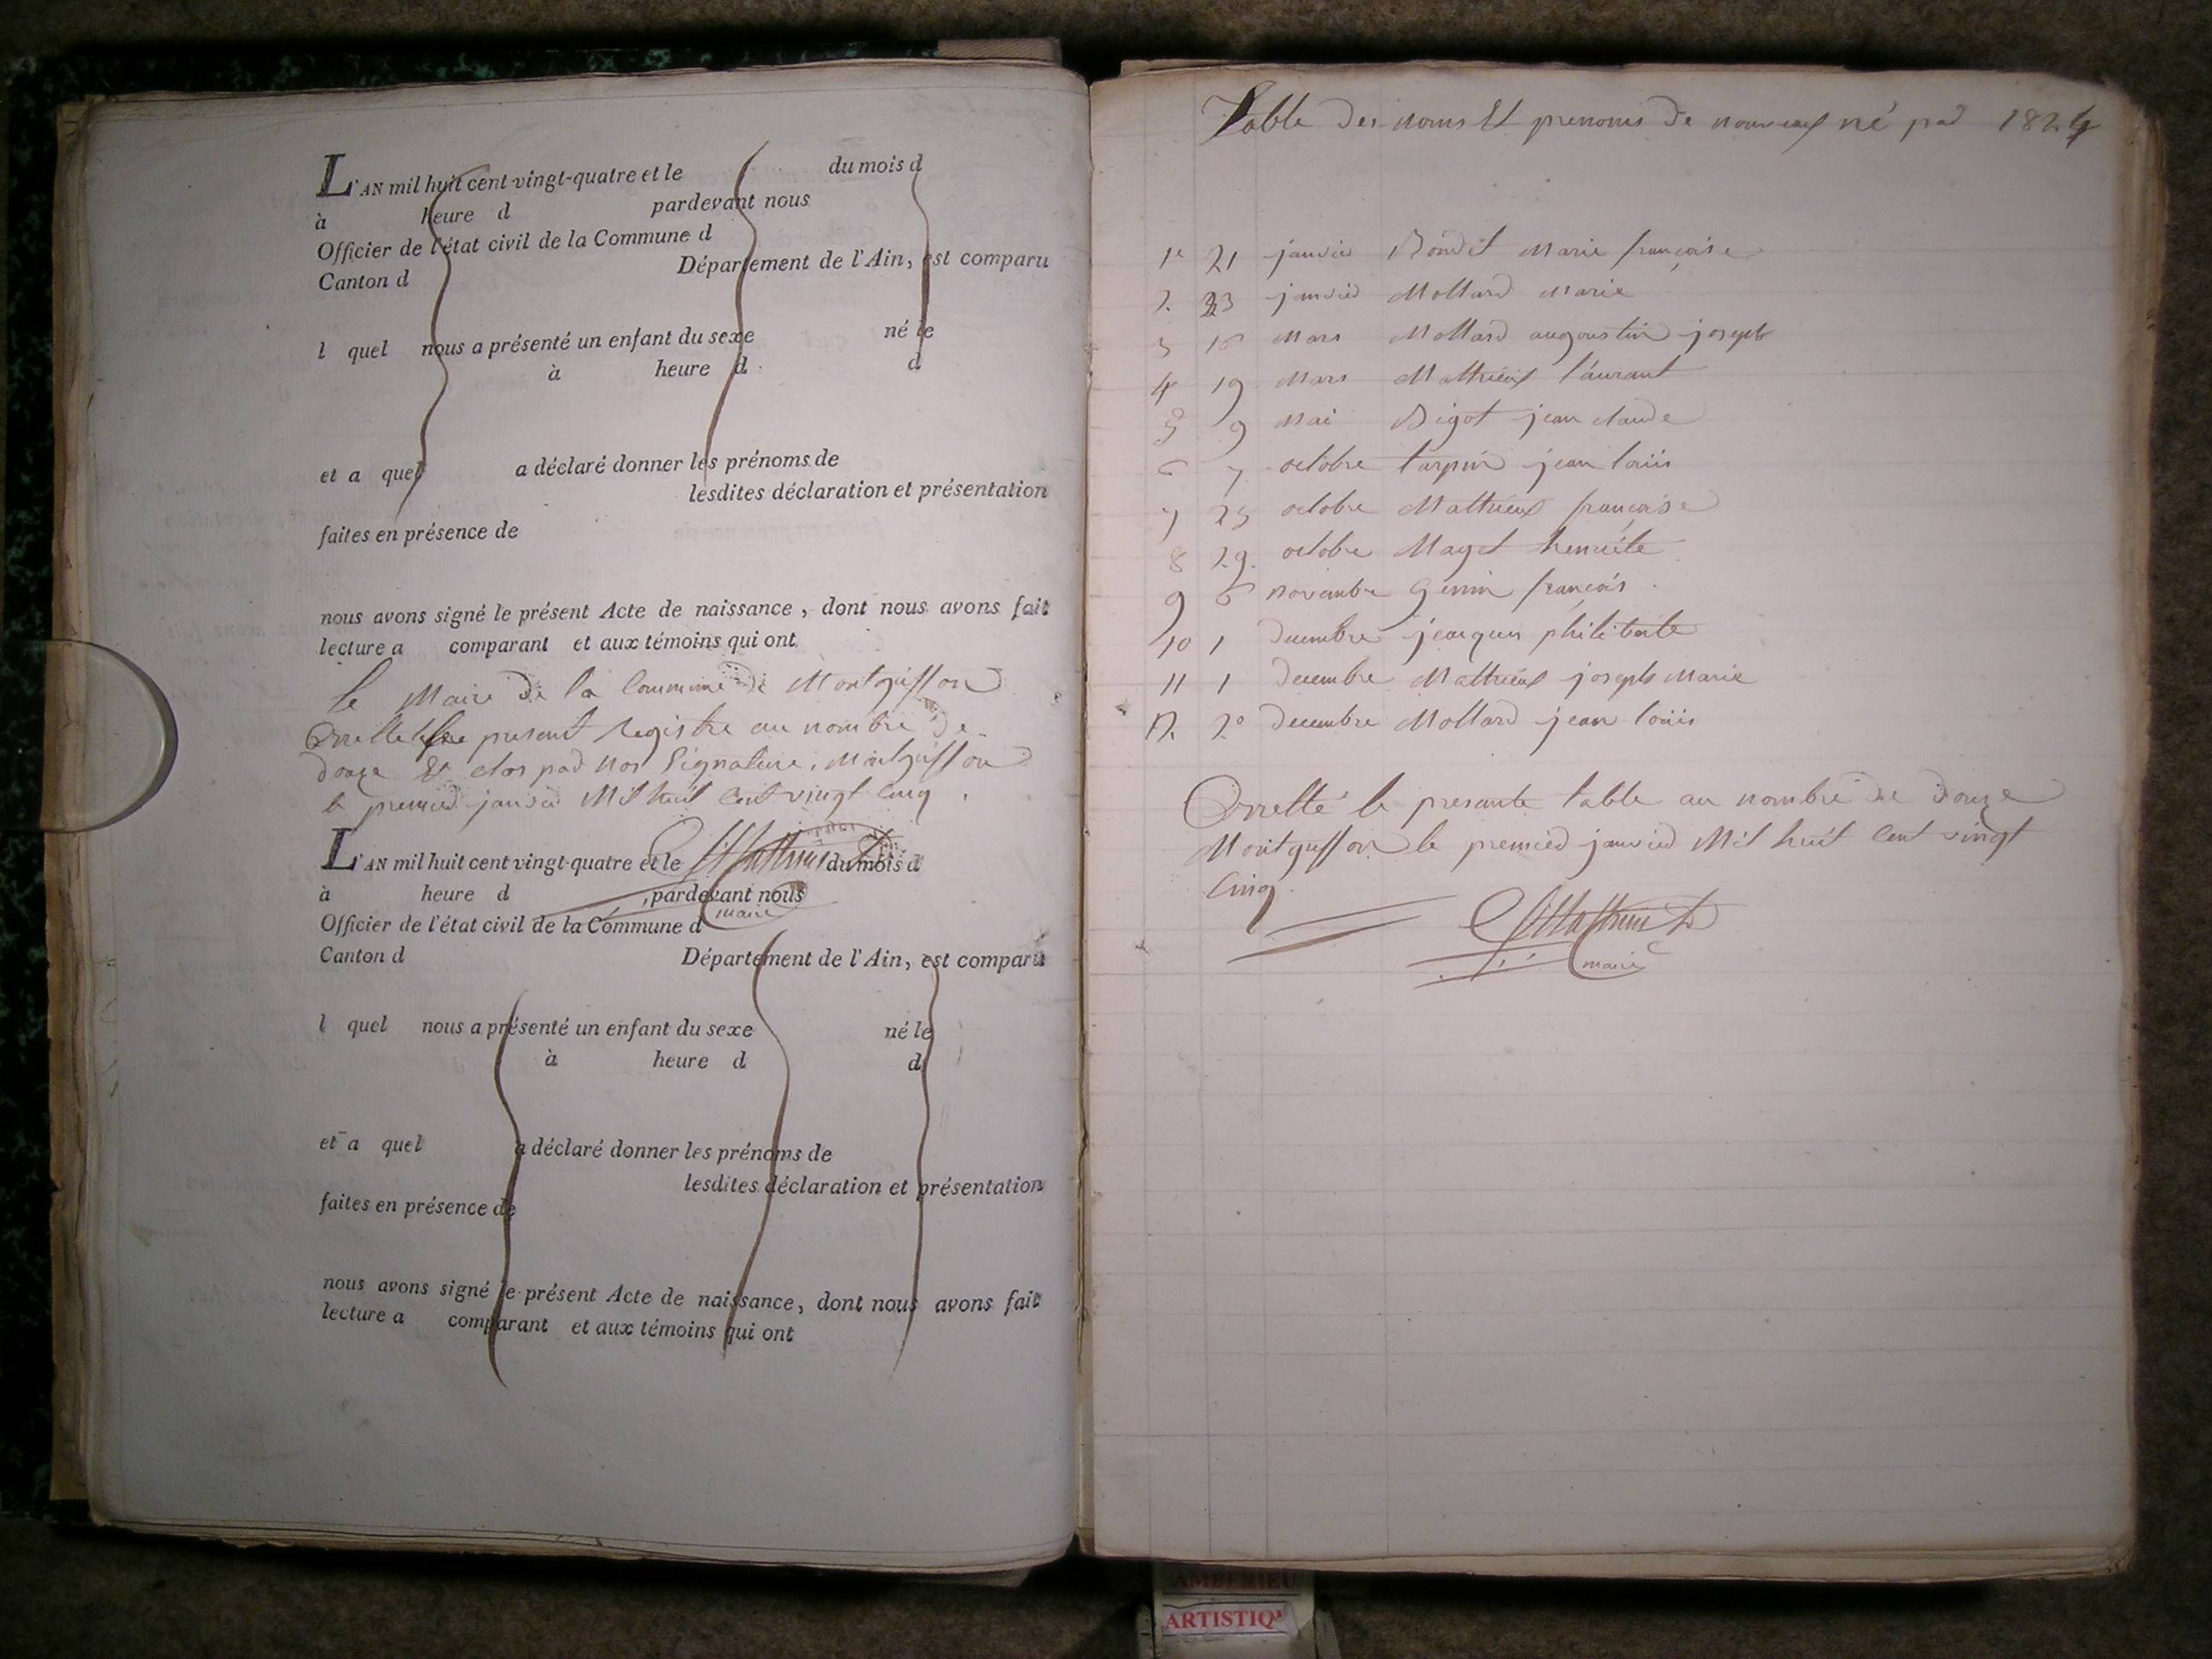 L'AN mil huit cent vingt-quatre et le du mois d
à heure d pardevant nous
Officier de l'état civil de la Commune d
Canton d Département de l'Ain, est comparu
l quel nous a présenté un enfant du sexe né le
à heure d d
et a quel a déclaré donner les prénoms de
lesdites déclaration et présentation
faites en présence de
nous avons signé le présent Acte de naissance, dont nous avons fait
lecture a comparant et aux témoins qui ont
le Maire de la Commune de Montguffon
present Registre au nombre de
douze et clos par nos Signature. Montguffon
le premier janvier Mil huit Cent vingt Cinq.
L'AN mil huit cent vingt-quatre et le du mois d
à heure d pardevant nous
maire
Officier de l'état civil de la Commune d
Canton d Département de l'Ain, est comparu
l quel nous a présenté un enfant du sexe né le
à heure d d
et a quel a déclaré donner les prénoms de
lesdites déclaration et présentation
faites en présence de
nous avons signé le présent Acte de naissance, dont nous avons fait
lecture a comparant et aux témoins qui ont
Table des noms Et prenoms de nouveaux né par 1824
1e 21 janvier Marie françoise
2. 23 janvier Mollard Marie
3 Mars Mollard augoustin joseph
4 19 Mars Mathieux laurant
5 9 Mai Bigot jean claude
6 7 octobre tarpin jean louis
7 25 octobre Mathieux françoise
8 29. octobre henriete
9 6 novembre Genin françois
10 1 decembre philiberte
11 1 decembre Mathieux joseph Marie
12. 20 decembre Mollard jean louis
Arretté la presante table au nombre de douze
Montguffon le premier janvier Mil huit Cent vingt
Cinq.
maire
ARTISTIQ